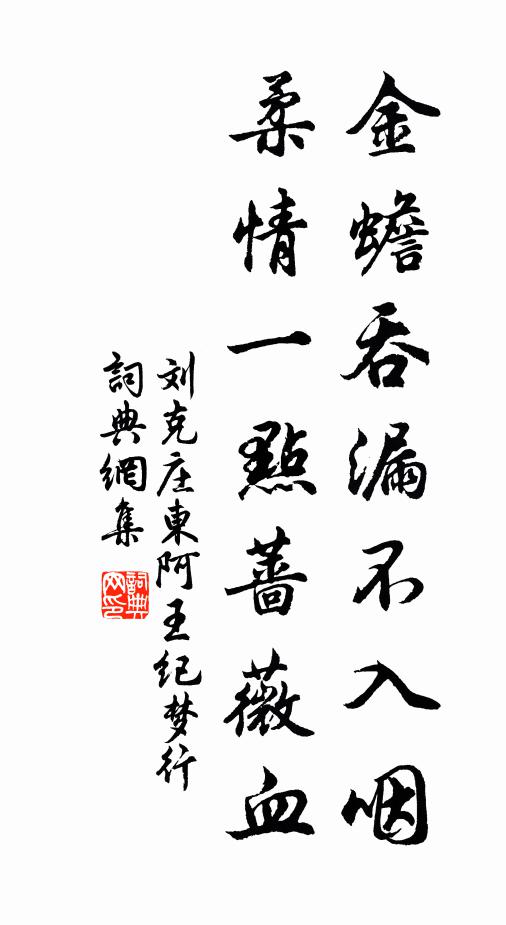 金蟾吞漏不入咽
柔情一點薔薇血
刘克庄東阿王纪梦行
詞典網集
詞典网印